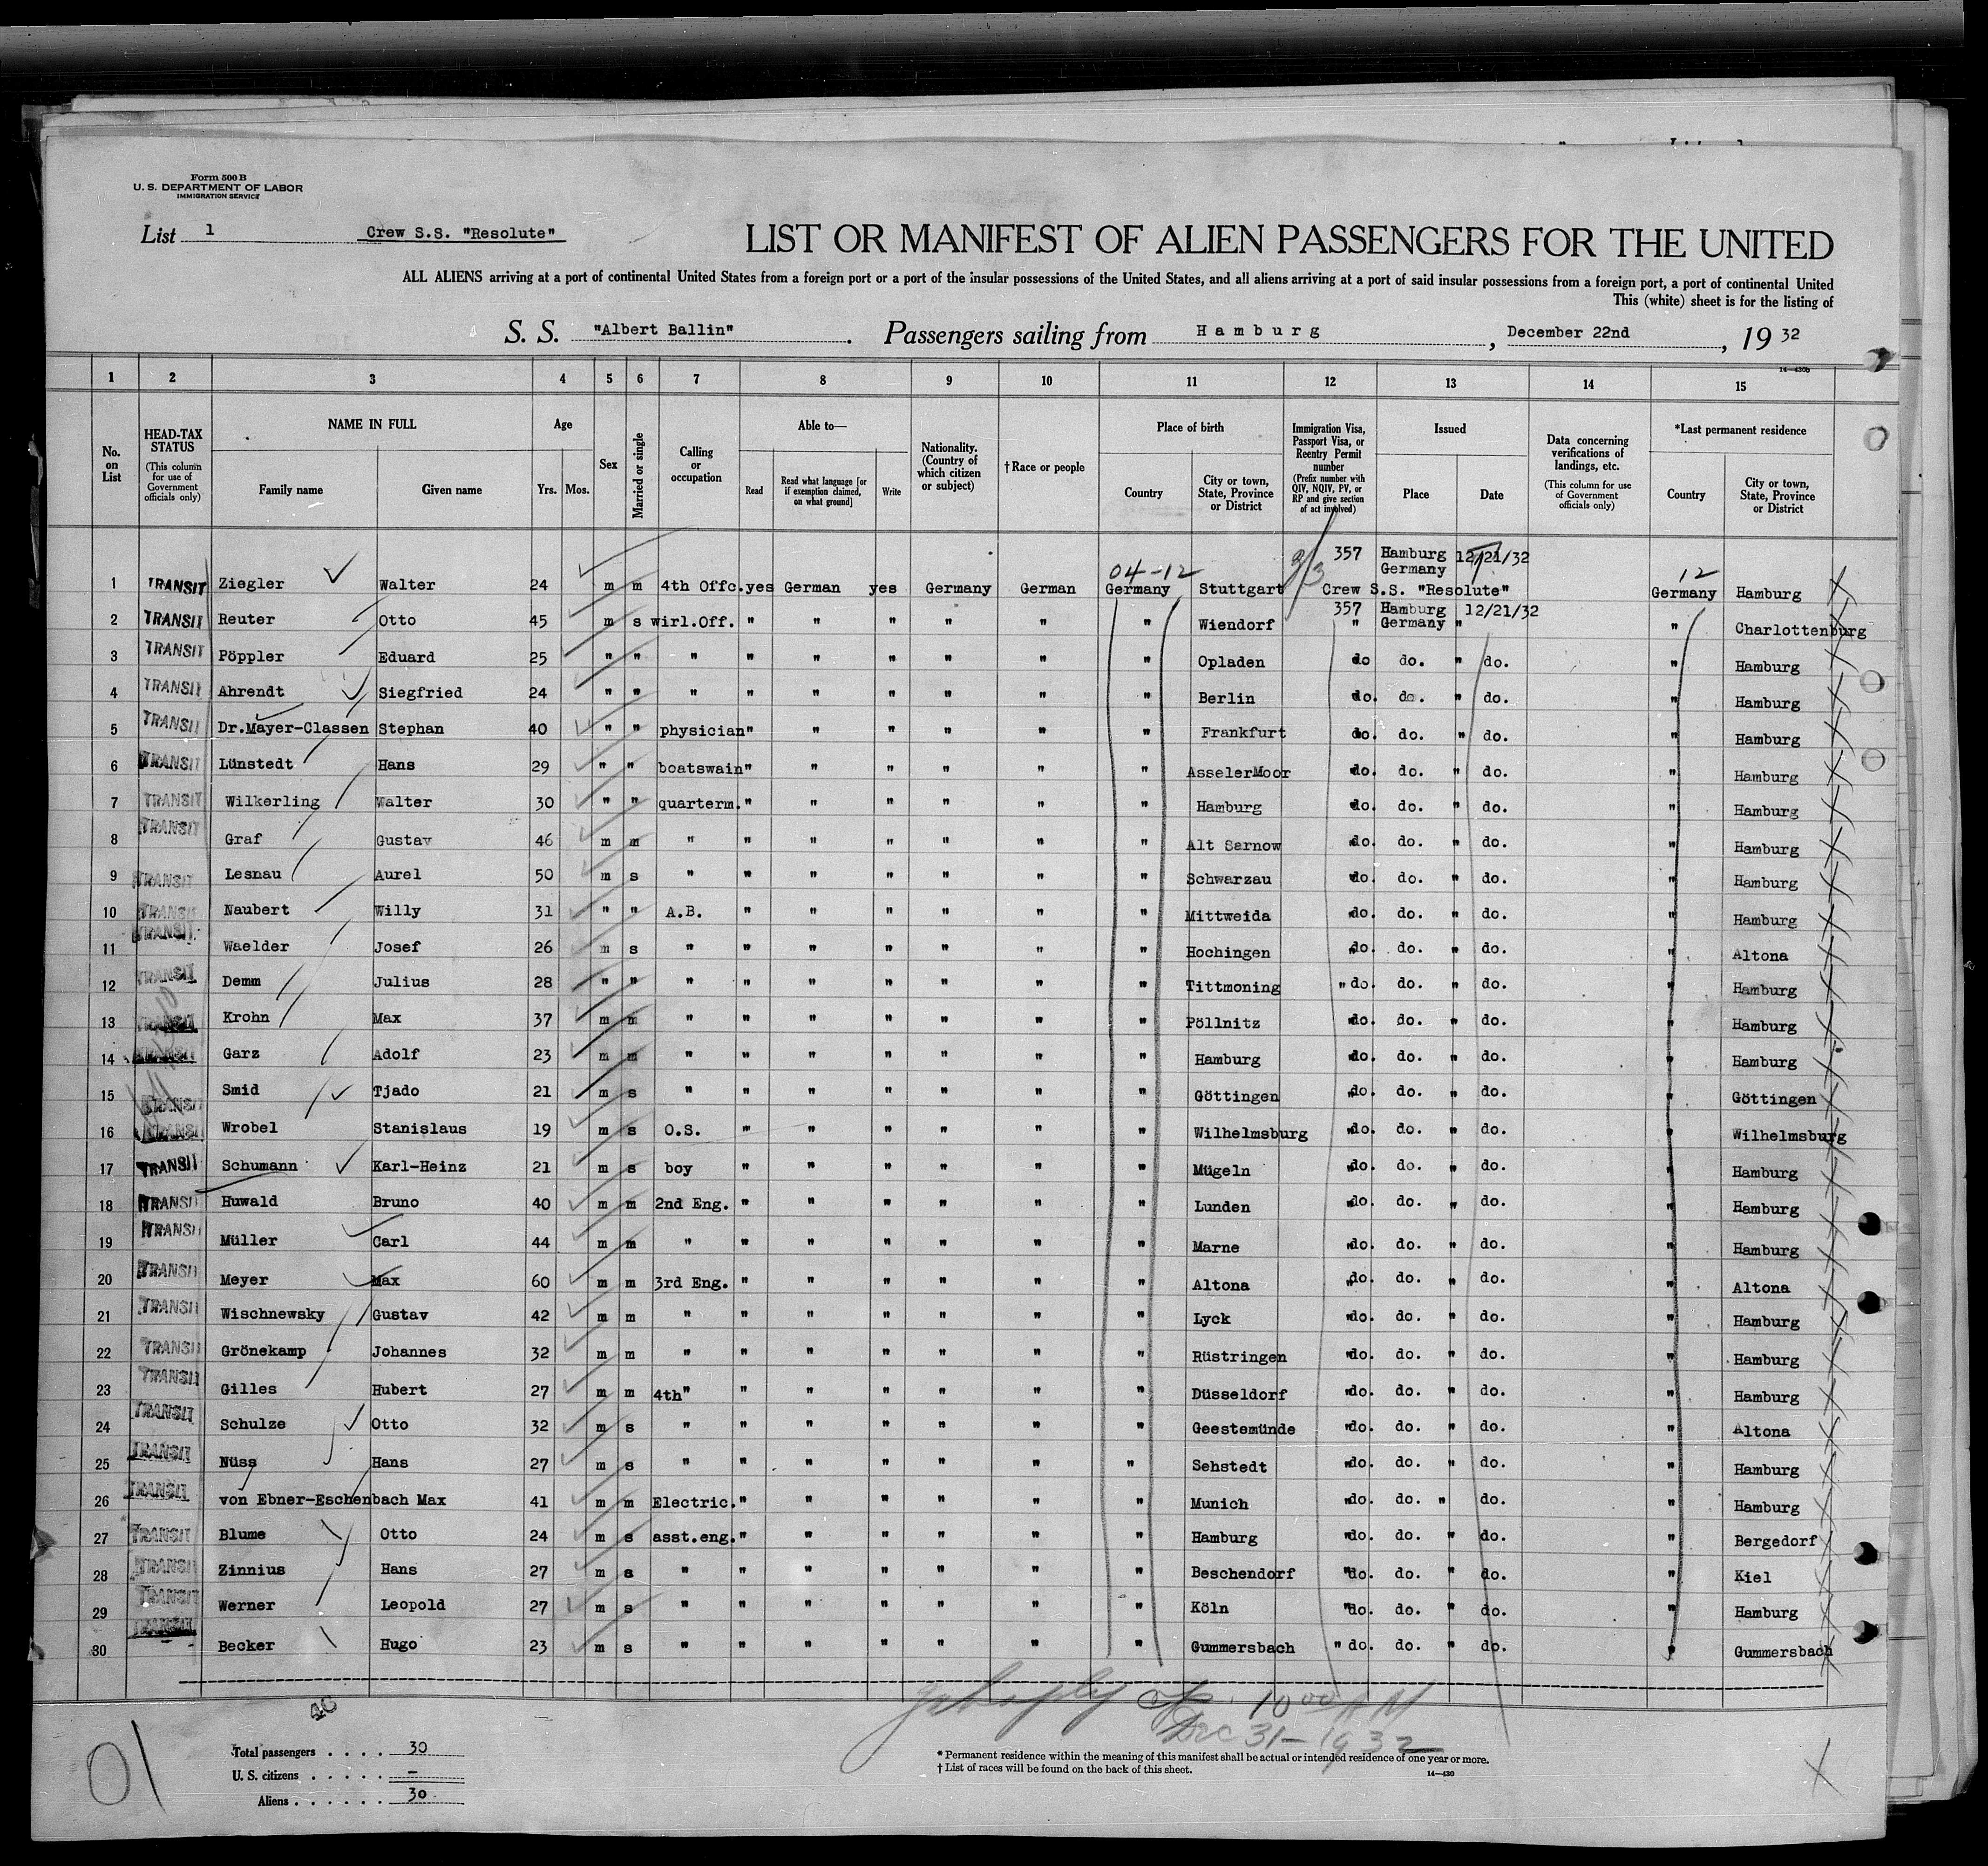 Form 500 B
U. S. DEPARTMENT OF LABOR
IMMIGRATION SERVICE
List 1 Crew S.S. "Resolute"
LIST OR MANIFEST OF ALIEN PASSENGERS FOR THE UNITED
ALL ALIENS arriving at a port of continental United States from a foreign port or a port of the insular possessions of the United States, and all aliens arriving at a port of said insular possessions from a foreign port, a port of continental United
This (white) sheet is for the listing of
S. S. "Albert Ballin". Passengers sailing from Hamburg, December 22nd, 19 32
14—430b
1 2 3 4 5 6 7 8 9 10 11 12 13 14 15
No. on List
HEAD-TAX STATUS
(This column for use of Government officials only)
NAME IN FULL
Family name Given name
Age
Yrs. Mos.
Sex
Married or single
Calling or occupation
Able to—
Read
Read what language [or if exemption claimed, on what ground]
Write
Nationality. (Country of which citizen or subject)
† Race or people
Place of birth
Country
City or town, State, Province or District
Immigration Visa, Passport Visa, or Reentry Permit number
(Prefix number with QIV, NQIV, PV, or RP and give section of act involved)
Issued
Place Date
Data concerning verifications of landings, etc.
(This column for use of Government officials only)
*Last permanent residence
Country
City or town, State, Province or District
04-12 3/3 357 Hamburg Germany 12/21/32 12
1 TRANSIT Ziegler Walter 24 m m 4th Offc. yes German yes Germany German Germany Stuttgart Crew S.S. "Resolute" Germany Hamburg
2 TRANSIT Reuter Otto 45 m s wirl.Off. " " " " " " Wiendorf 357 " Hamburg Germany " 12/21/32 " Charlottenburg
3 TRANSIT Pöppler Eduard 25 " " " " " " " " " Opladen do do. " do. " Hamburg
4 TRANSIT Ahrendt Siegfried 24 " " " " " " " " " Berlin do. do. " do. " Hamburg
5 TRANSIT Dr.Mayer-Classen Stephan 40 " " physician " " " " " " Frankfurt do. do. " do. " Hamburg
6 TRANSIT Lünstedt Hans 29 " " boatswain " " " " " " AsselerMoor "do. do. " do. " Hamburg
7 TRANSIT Wilkerling Walter 30 " " quarterm. " " " " " " Hamburg "do. do. " do. " Hamburg
8 TRANSIT Graf Gustav 46 m m " " " " " " " Alt Sarnow "do. do. " do. " Hamburg
9 TRANSIT Lesnau Aurel 50 m s " " " " " " " Schwarzau "do. do. " do. " Hamburg
10 TRANSIT Naubert Willy 31 " " A.B. " " " " " " Mittweida "do. do. " do. " Hamburg
11 TRANSIT Waelder Josef 26 m s " " " " " " " Hochingen "do. do. " do. " Altona
12 TRANSIT Demm Julius 28 " " " " " " " " " Tittmoning " do. do. " do. " Hamburg
13 TRANSIT Krohn Max 37 m m " " " " " " " Pöllnitz "do. do. " do. " Hamburg
14 TRANSIT Garz Adolf 23 m m " " " " " " " Hamburg "do. do. " do. " Hamburg
15 TRANSIT Smid Tjado 21 m s " " " " " " " Göttingen "do. do. " do. " Göttingen
16 TRANSIT Wrobel Stanislaus 19 m s O.S. " " " " " " Wilhelmsburg "do. do. " do. " Wilhelmsburg
17 TRANSIT Schumann Karl-Heinz 21 m s boy " " " " " " Mügeln "do. do. " do. " Hamburg
18 TRANSIT Huwald Bruno 40 m m 2nd Eng. " " " " " " Lunden "do. do. " do. " Hamburg
19 TRANSIT Müller Carl 44 m m " " " " " " " Marne "do. do. " do. " Hamburg
20 TRANSIT Meyer Max 60 m m 3rd Eng. " " " " " " Altona "do. do. " do. " Altona
21 TRANSIT Wischnewsky Gustav 42 m m " " " " " " " Lyck "do. do. " do. " Hamburg
22 TRANSIT Grönekamp Johannes 32 m m " " " " " " " Rüstringen "do. do. " do. " Hamburg
23 TRANSIT Gilles Hubert 27 m m 4th" " " " " " " Düsseldorf "do. do. " do. " Hamburg
24 TRANSIT Schulze Otto 32 m s " " " " " " " Geestemünde "do. do. " do. " Altona
25 TRANSIT Nüss Hans 27 m s " " " " " " " Sehstedt "do. do. " do. " Hamburg
26 TRANSIT von Ebner-Eschenbach Max 41 m m Electric. " " " " " " Munich "do. do. " do. " Hamburg
27 TRANSIT Blume Otto 24 m s asst.eng. " " " " " " Hamburg "do. do. " do. " Bergedorf
28 TRANSIT Zinnius Hans 27 m s " " " " " " " Beschendorf "do. do. " do. " Kiel
29 TRANSIT Werner Leopold 27 m s " " " " " " " Köln "do. do. " do. " Hamburg
30 TRANSIT Becker Hugo 23 m s " " " " " " " Gummersbach " do. do. " do. " Gummersbach
40
10 00 AM
Dec 31-1932
Total passengers . . . . 30
U. S. citizens . . . . . –
Aliens . . . . . . 30
* Permanent residence within the meaning of this manifest shall be actual or intended residence of one year or more.
† List of races will be found on the back of this sheet.
14—430